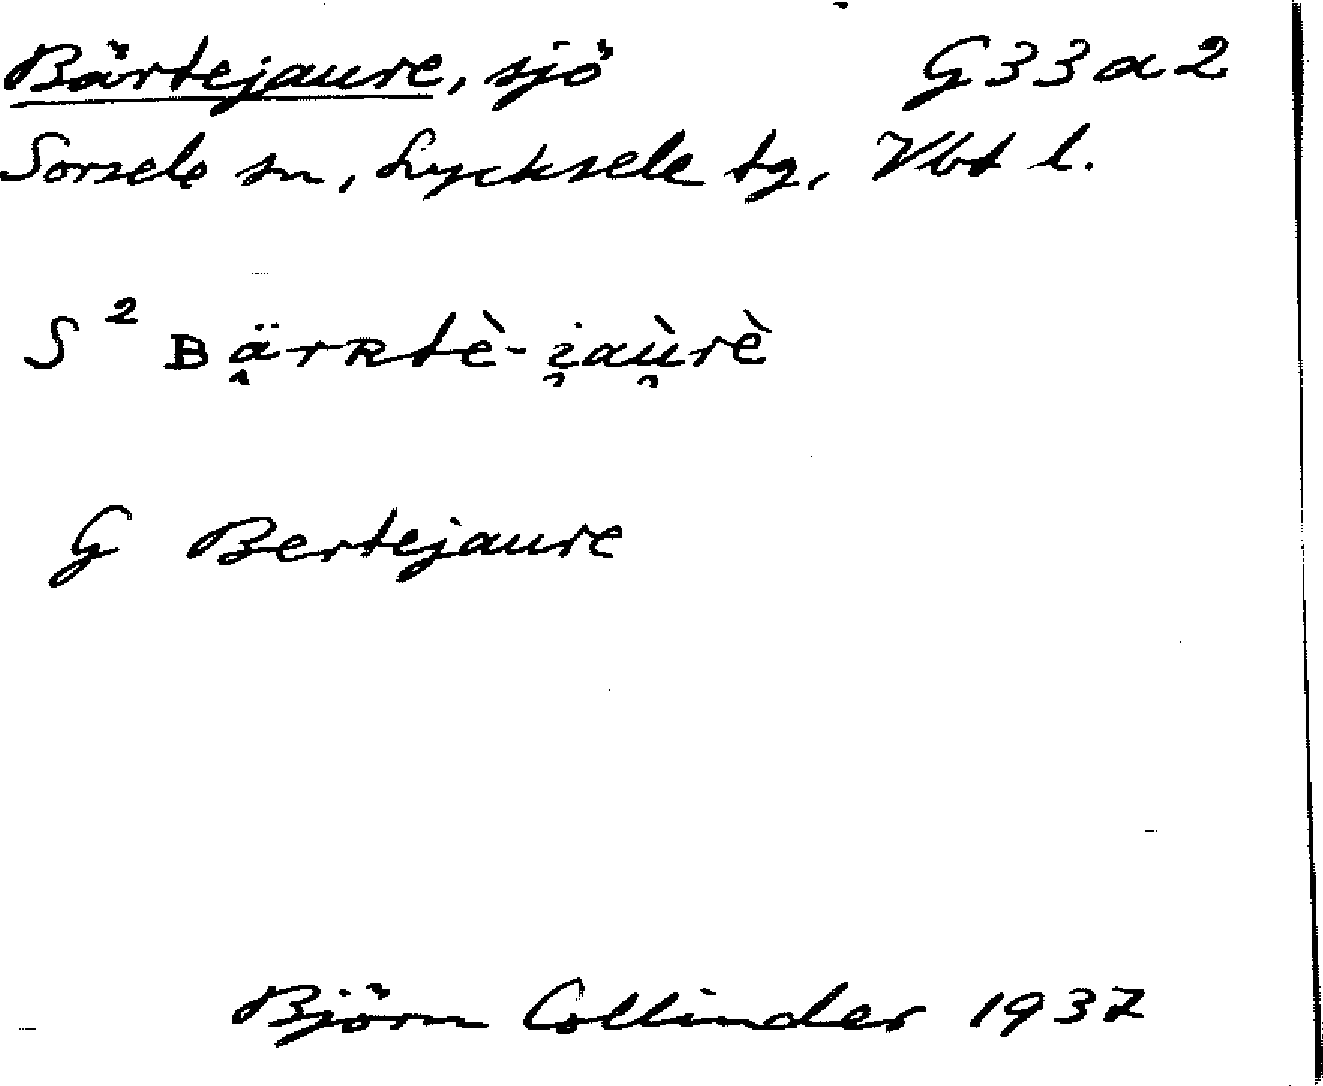 Bärtejaure, sjö G33a2
Sorsele sn, Lycksele tg, Vbt l.
S² Bä̭rʀtè-i̯aù̯rè
G Bertejaure
Björn Collinder 1937